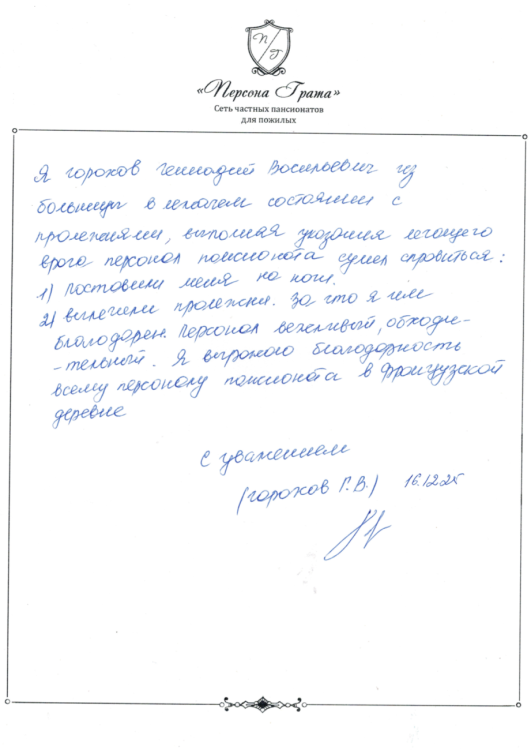 П/Г
«Персона Грата»
Сеть частных пансионатов
для пожилых
Я Горохов Геннадий Васильевич из
больницы в лежачем состоянии с
пролежнями, выполняя указания лечащего
врача персонал пансионата сумел справиться:
1) Поставили меня на ноги.
2) вылечили пролежни. За что я им
благодарен. Персонал вежливый, обходи-
-тельный. Я выражаю благодарность
всему персоналу пансионата в Французской
деревне
С уважением
(Горохов Г.В.) 16.12.25